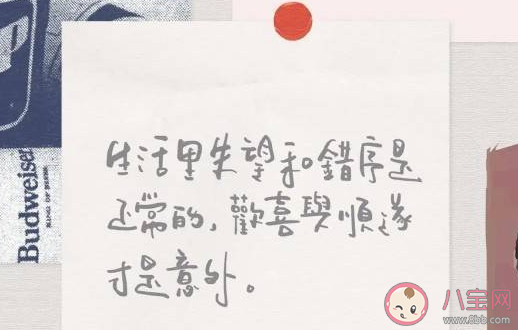 生活里失望和錯序是
正常的，歡喜與順遂
才是意外。
Budweiser
KING OF BEERS
八宝网
www.8bb.com